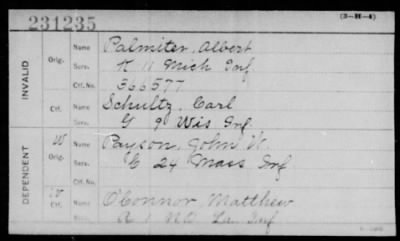 231235 (3-H-4)
INVALID
Orig.
Name Palmiter, Albert
Serv. K 11 Mich Inf
Ctf. No. 366577
Ctf.
Name Schultz, Carl
Serv. G 9 Wis Inf
DEPENDENT
W Orig.
Name Payson, John W.
Serv. E 24 Mass Inf
Ctf. No.
W Ctf.
Name O'Connor, Matthew
Serv. A 1 N.O. La Inf